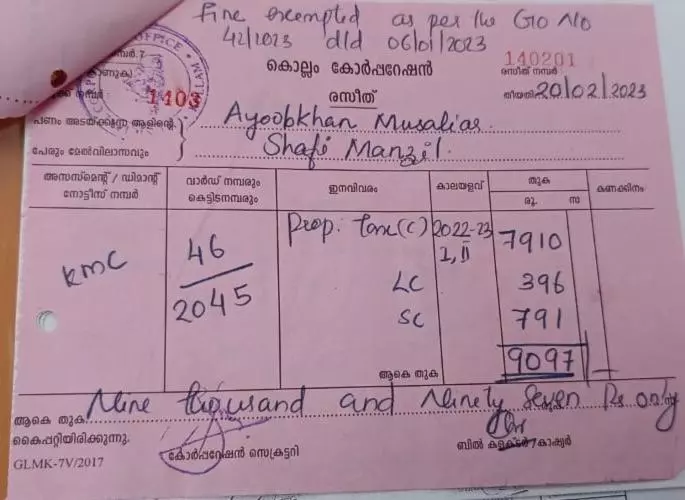 Fine exempted as per the GO NO
42/2023 dtd 06/01/2023
OFFICE
മ്പർ.7
കൊല്ലം കോർപ്പറേഷൻ
140201
രസീത് നമ്പർ
നമ്പർ 1403
രസീത്
തീയതി 20/02/2023
പണം അടയ്ക്കുന്ന ആളിന്റെ Ayoobkhan Musaliar
പേരും മേൽവിലാസവും Shafi Manzil.
അസസ്മെന്റ് / ഡിമാന്റ് നോട്ടീസ് നമ്പർ വാർഡ് നമ്പരും കെട്ടിടനമ്പരും ഇനവിവരം കാലയളവ് തുക കണക്കിനം
രൂ. സ
KMC 46 Prop: Tax (C) 2022-23 7910
2045 I, II
LC 396
SC 791
ആകെ തുക 9097
ആകെ തുക Nine thousand and Ninety Seven Rs. only
കൈപ്പറ്റിയിരിക്കുന്നു.
കോർപ്പറേഷൻ സെക്രട്ടറി ബിൽ കളക്ടർ/കാഷ്യർ
GLMK-7V/2017